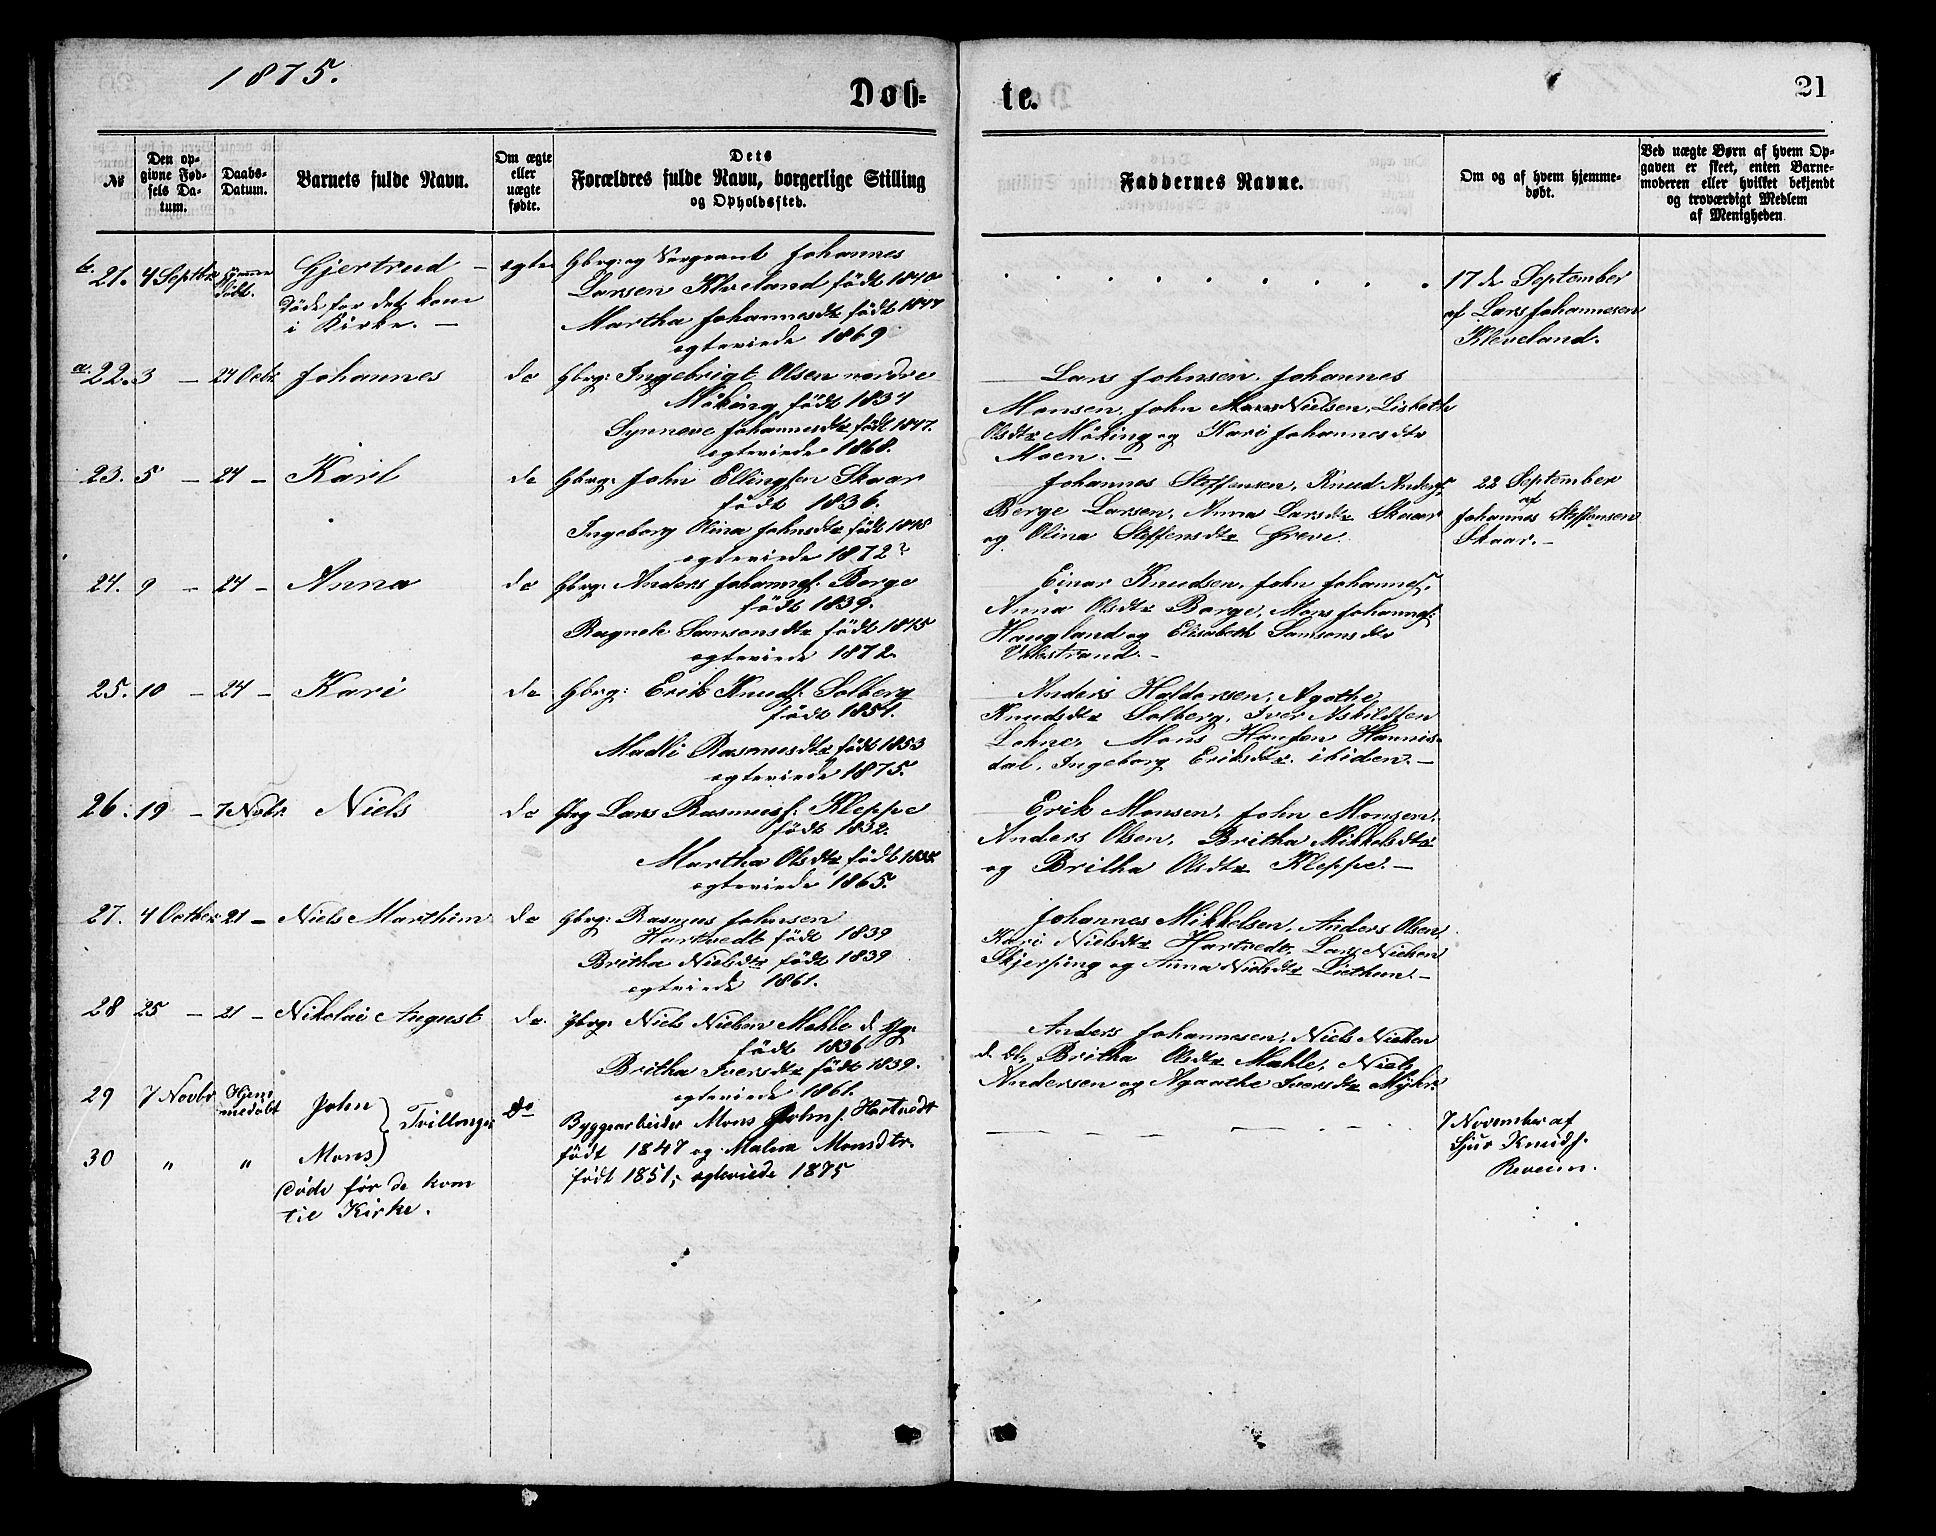 1875.
Døb=
te.
21
№
Den op=
givne Fød=
sels Da=
tum.
Daabs=
Datum.
Barnets fulde Navn.
Om ægte
eller
uægte
fødte.
Dets
Forældres fulde Navn, borgerlige Stilling
og Opholdssted.
Faddernes Navne.
Om og af hvem hjemme=
døbt.
Ved uægte Børn af hvem Op=
gaven er skeet, enten Barne=
moderen eller hvilket bekjendt
og troværdigt Medlem
af Menigheden.
b. 21. 4 Septbr hjemme døbt. Gjertrud – egte Gbrg: og Sergeant Johannes
Larsen Kleveland født 1840
Døde før det kom
i Kirke. –
Martha Johannesdtr født 1847
egteviede 1869
17 de September
af Lars Johannesen
Kleveland.
a. 22. 3 – 24 Octr Johannes do Gbrg: Ingebrigt Olsen nordre
Møking født 1834
Synneve Johannesdtr født 1847.
egteviede 1868.
Lars Johnsen, Johannes
Monsen, John Nielsen, Lisbeth
Olsdtr Møking og Kari Johannesdtr
Moen. –
23. 5 – 24 – Karl do Gbrg: John Ellingsen Skaar
født 1836.
Ingeborg Olina Johnsdtr født 1845
egteviede 1872
Johannes Steffensen, Knud Anders.
Berge Larsen, Anna Larsdtr Skaar
og Olina Steffensdtr Greve.
22 September
af
Johannes Steffensen
Skaar. –
24. 9 – 24 – Anna do Gbrg: Anders Johannes. Berge
født 1839.
Ragnele Samsonsdtr født 1845
egteviede 1872.
Einar Knudsen, John Johannes.
Anna Olsdtr Berge, Mons Johannes.
Haugland og Elisabeth Samsonsdtr
Vikstrand. –
25. 10 – 24 – Kari do Gbrg: Erik Knuds. Solberg
født 1851.
Madli Rasmusdtr født 1853
egteviede 1875.
Anders Haldorsen, Agathe
Knudsdtr Solberg, Iver Askildsen
Lohne, Mons Hansen Hannis=
dal, Ingeborg Eriksdtr ibiden. –
26. 19 – 7 Novbr. Niels do Gbrg Lars Rasmus. Kleppe
født 1832.
Martha Olsdtr født 1835
egteviede 1865.
Erik Monsen, John Monsen,
Anders Olsen, Britha Mikkelsdtr
og Britha Olsdtr Kleppe. –
27. 4 Octbr. 21 – Niels Marthin do Gbrg: Rasmus Johnsen
Hartvedt født 1839
Britha Nielsdtr født 1839
egteviede 1861.
Johannes Mikkelsen, Anders Olsen
Kari Nielsdtr Hartvedt, Lars Nielsen
Skjerping og Anna Nielsdtr Liethun. –
28 25 – 21 – Nikolai August do. Gbrg: Niels Nielsen Mahle d. yg.
født 1836
Britha Iversdtr født 1839.
egteviede 1861.
Anders Johannesen, Niels Nielsen
d. El, Britha Olsdtr Mahle, Niels
Andersen og Agaathe Iversdtr Myhr.
29 7 Novbr Hjem
medøbt John } Tvillinger do Byggearbeider Mons Johns. Hartvedt
30 " " Mons født 1847 og Malna Monsdtr.
født 1851; egteviede 1875
Døde før de kom
til Kirke.
7 November af
Sjur Knuds.